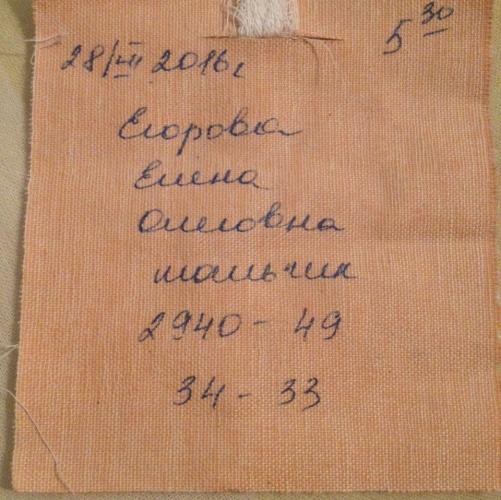 28/III 2016г 5 30
Егорова
Елена
Олеговна
мальчик
2940 - 49
34 - 33